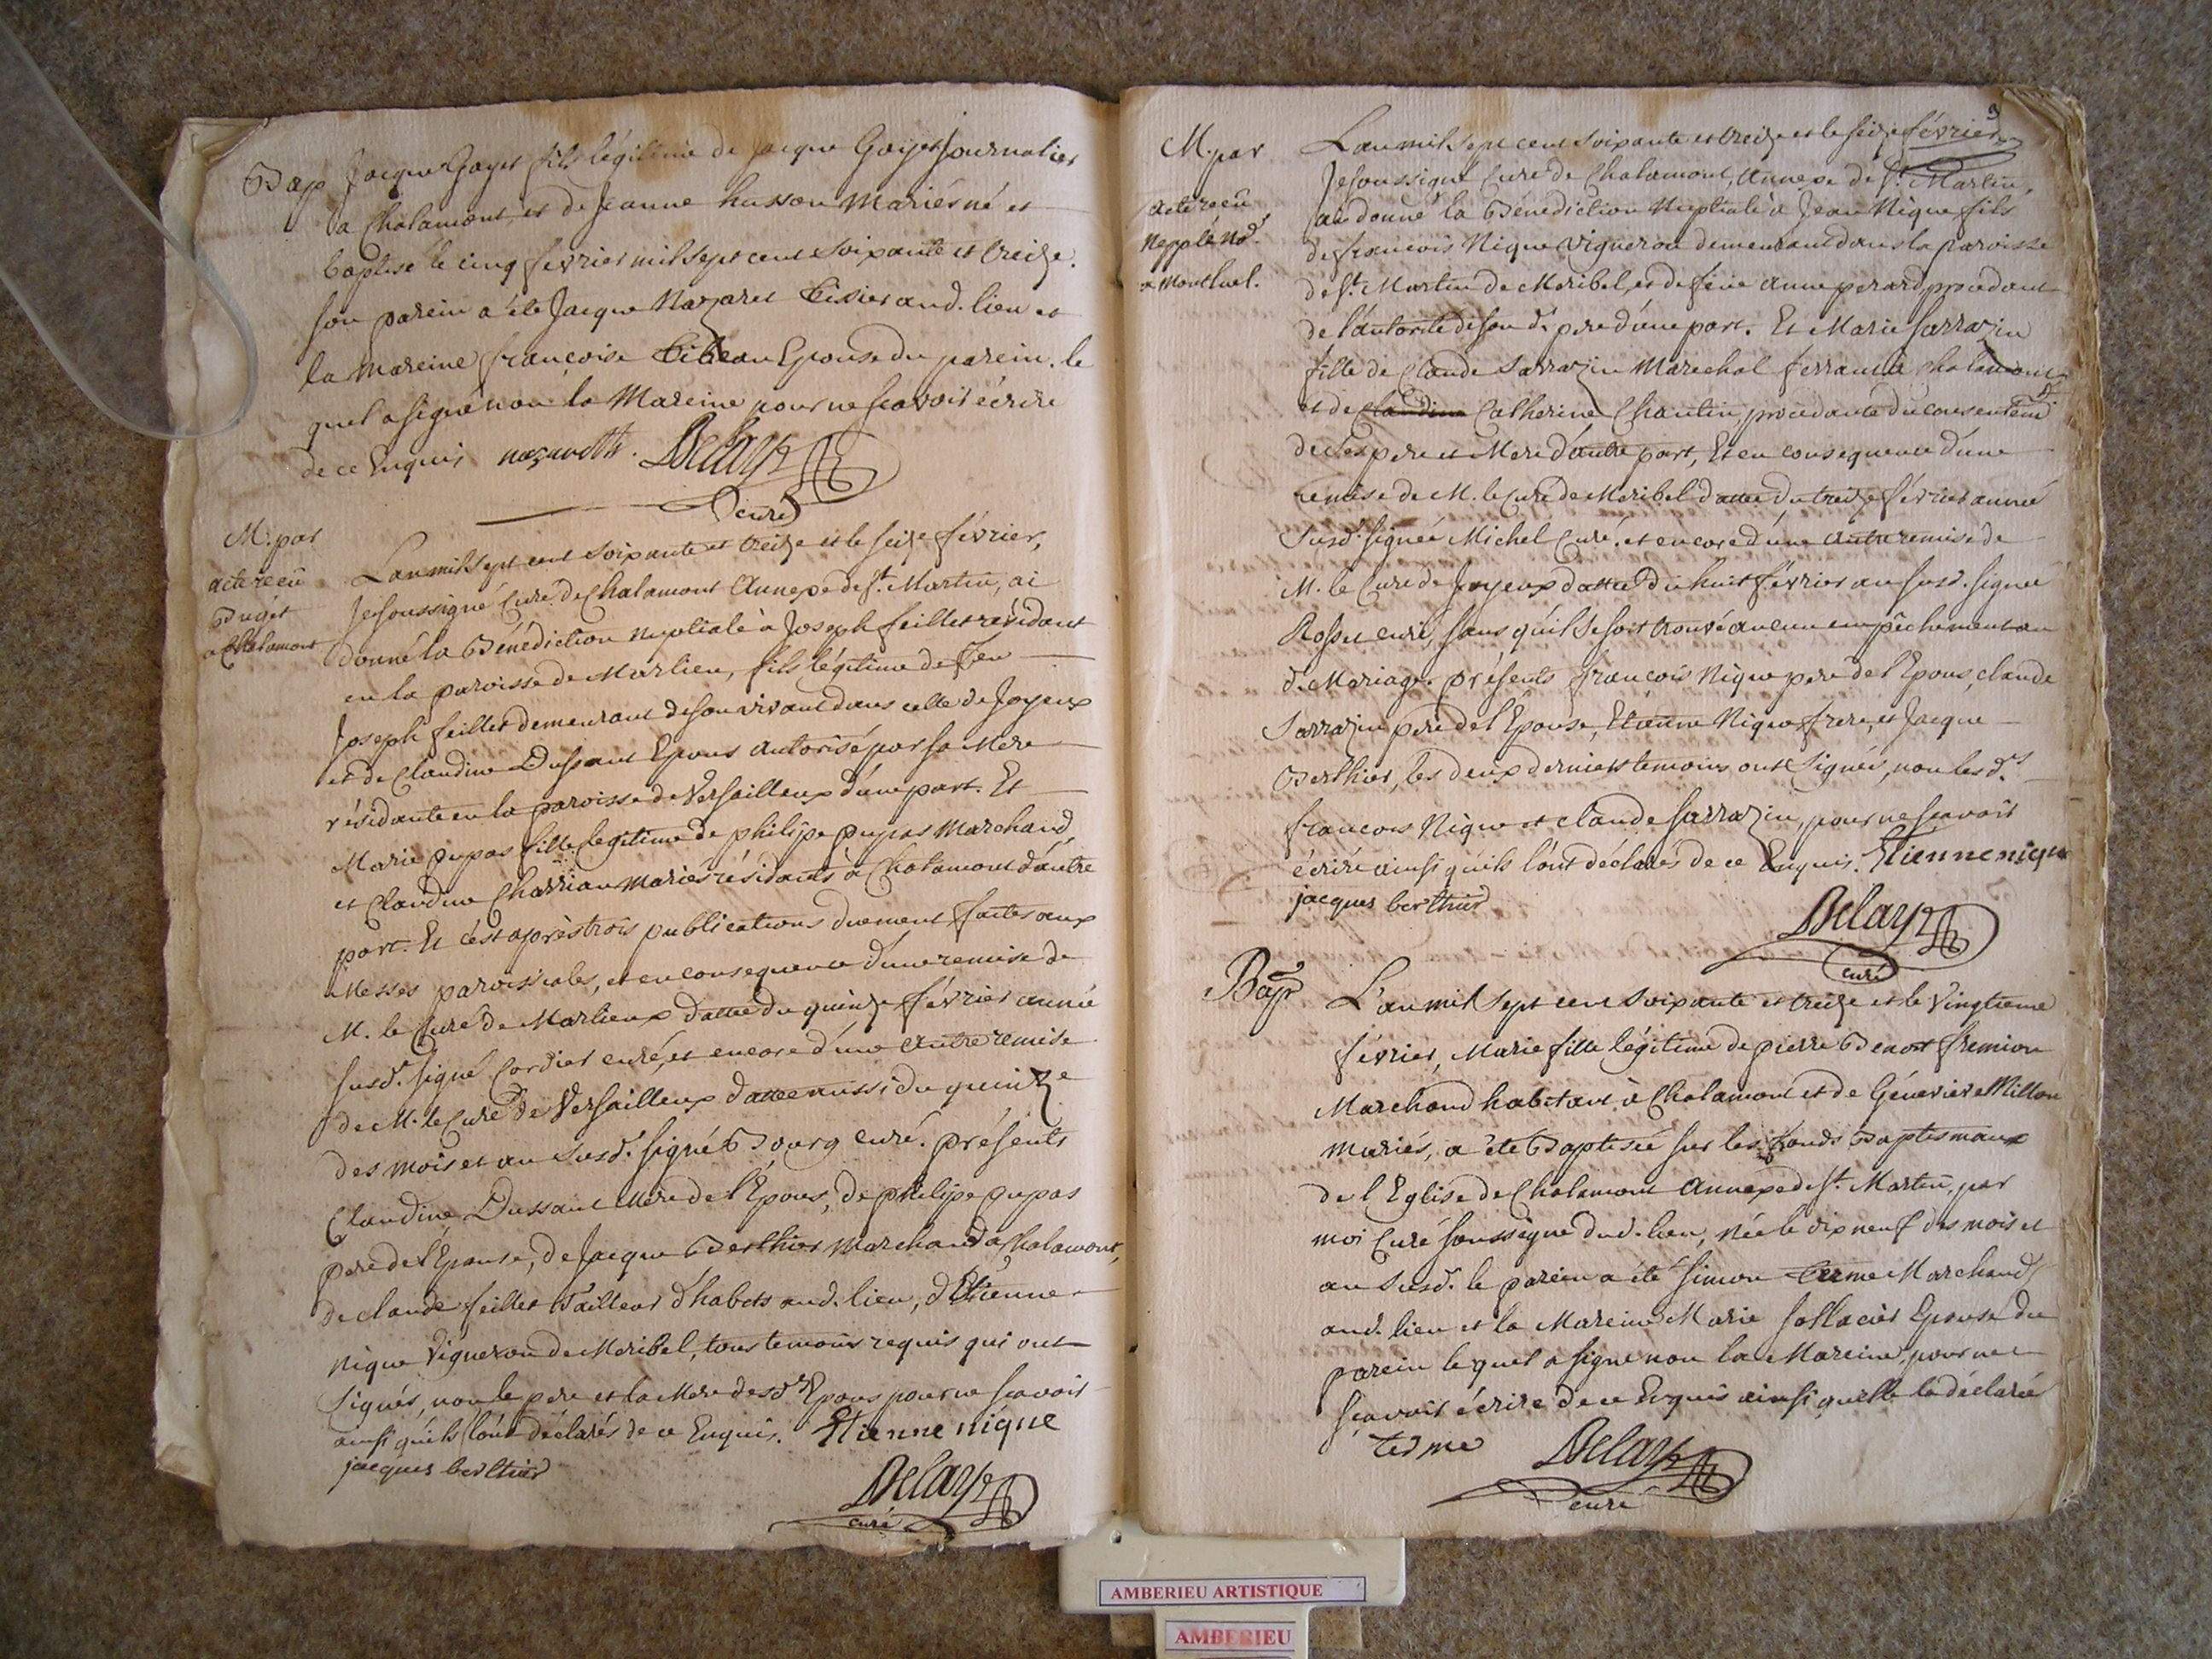 Bap Jacque Goyet fils légitime de Jacque Goyet Journalier
a Chalamont et de Jeanne husson Mariés né et
baptisé le cinq fevrier mil sept cent soixante et treize.
son parein a été Jacque Nazaret Tissier aud. lieu et
la mareine françoise Epouse du parein. le
quel a signé non la Mareine pour ne scavoir écrire
de ce Enquis nazareth. Delaye
curé
M. par
acte reçu
Buget
a Chalamont
L'an mil sept cent soixante et treize et le seize février,
Je soussigné Curé de Chalamont Annexe de St. Martin, ai
donné la Bénédiction Nuptiale à Joseph feillet résidant
en la paroisse de Marlieu, fils légitime de feu
Joseph feillet demeurant de son vivant dans celle de Joyeux
et de Claudine Dussaut Epous autorisé par sa Mere
résidante en la paroisse de Versailleux d'une part. Et
Marie pupas fille legitime de philipe pupas Marchand,
et Claudine Charrian mariés résidants à Chalamont d'autre
part. Et c'est après trois publications duement faites aux
Messes paroissiales, et en consequence d'une remise de
M. le Curé de Marlieux dattée du quinze février année
susd. signé Cordier curé, et encore d'une autre remise
de M. le Curé de Versailleux dattée aussi du quinze
des mois et an susd. signé Bourg curé. présents
Claudine Dussaut Mere de l'Epous, de philipe pupas
pere de l'Epouse, de Jacque Berthier Marchand a Chalamont,
de claude feillet Tailleur d'habits aud. lieu, d'Etienne
Nique Vigneron de Meribel, tous temoins requis qui ont
signés, non le pere et la Mere desd. Epous pour ne scavoir
ainsi qu'ils l'ont déclarés de ce Enquis. Etienne nique
jacques berthier
Delaye
curé
3
M. par
acte reçu
Nepple Not.
a Montluel.
L'an mil sept cent soixante et treize et le seize février
Je soussigné Curé de Chalamont, Annexe de St. Martin,
ai donné la Bénédiction Nuptiale à Jean Nique fils
de francois Nique vigneron demeurant dans la paroisse
de St. Martin de Meribel, et de feue Anne perard, procedant
de l'autorité de son d. pere d'une part. Et Marie Sarrazin
fille de Claude Sarrazin Marechal ferrant à Chalamont
et de Claudine Catherine Chautin, procedante du consentemt.
de ses pere et Mere d'autre part, Et en consequence d'une
remise de M. le Curé de Meribel dattée du treize février année
susd. signée Michel Curé. et encore d'une autre remise de
M. le Curé de Joyeux dattée du huit février an susd. signée
Rosset curé, sans qu'il se soit trouvé aucun empêchement au
d. Mariage. présents francois Nique pere de l'Epous, claude
Sarrazin pere de l'Epouse, Etienne Nique frere, et Jacque
Berthier, les deux derniers temoins ont signés, non lesd.
francois Nique et claude Sarrazin, pour ne scavoir
écrire ainsi qu'ils l'ont déclarés de ce Enquis. Etienne nique
jacques berthier
Delaye
curé
Bap
L'an mil sept cent soixante et treize et le vingtieme
février, Marie fille légitime de pierre Benoit fremion
Marchand habitant à Chalamont et de Génevieve Millon
mariés, a été Baptisée sur les fonds Baptismaux
de l'Eglise de Chalamont Annexe de St. Martin, par
moi Curé soussigné dud. lieu, Née le dix neuf des mois et
an susd. le parein a été Simon Terme Marchand
aud. lieu et la Mareine Marie Epouse du
parein lequel a signé non la Mareine, pour ne
scavoir écrire de ce Enquis ainsi quelle la déclaré
terme Delaye
curé
AMBERIEU ARTISTIQUE
AMBERIEU